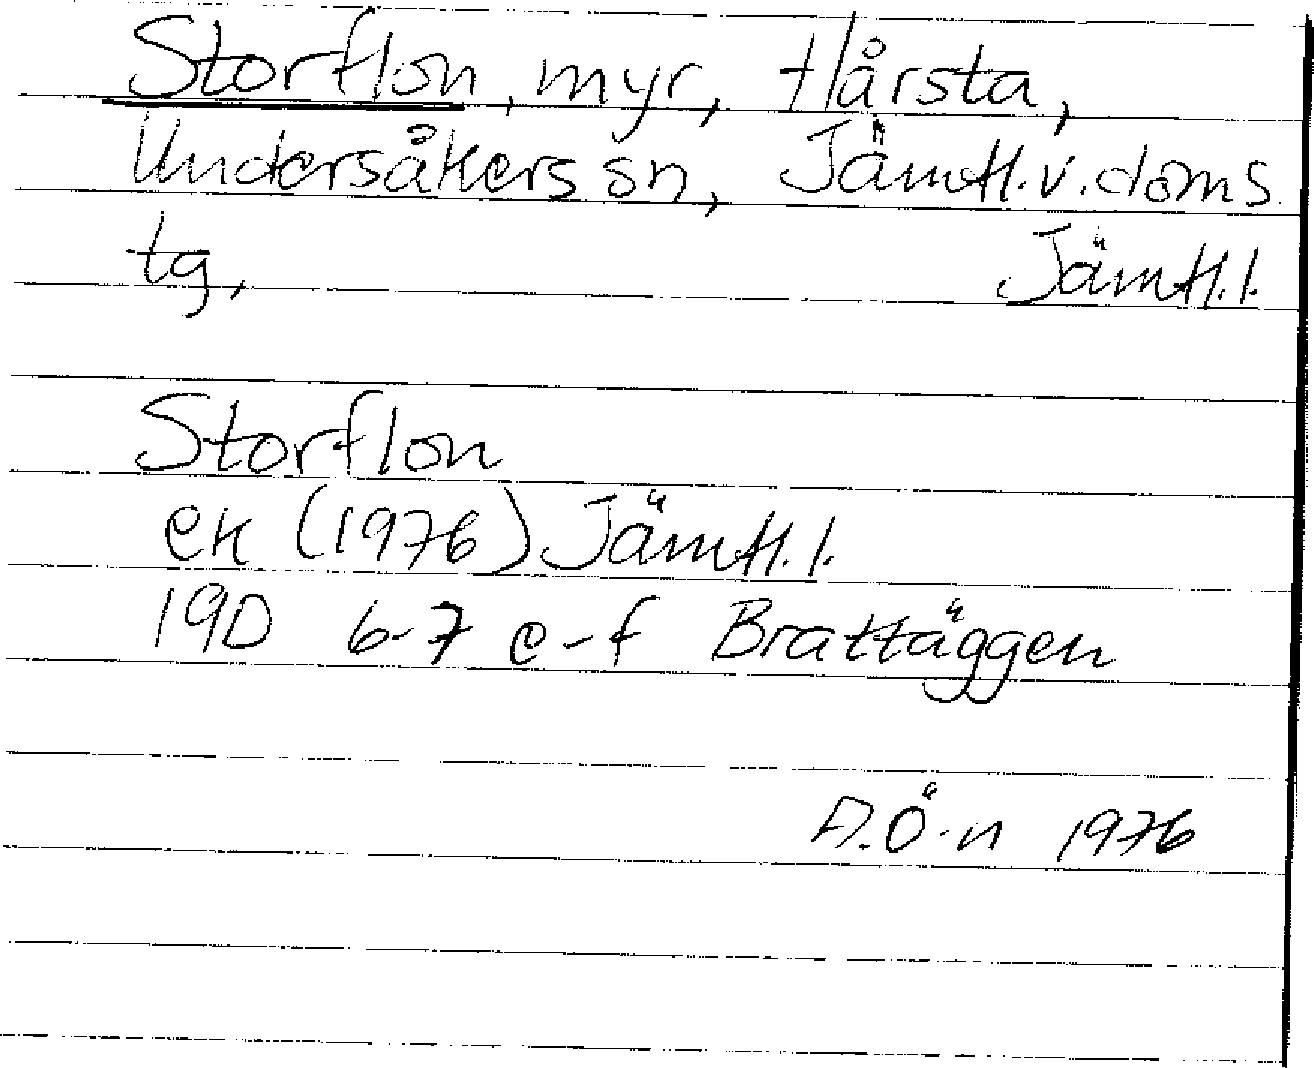 Storflon, myr, Hårsta,
Undersåkers sn, Jämtl.v.doms
tg,
Jämtl.l.
Storflon
ek (1976) Jämtl.l.
19D 6-7 e-f Brattäggen
A.Ö-n 1976